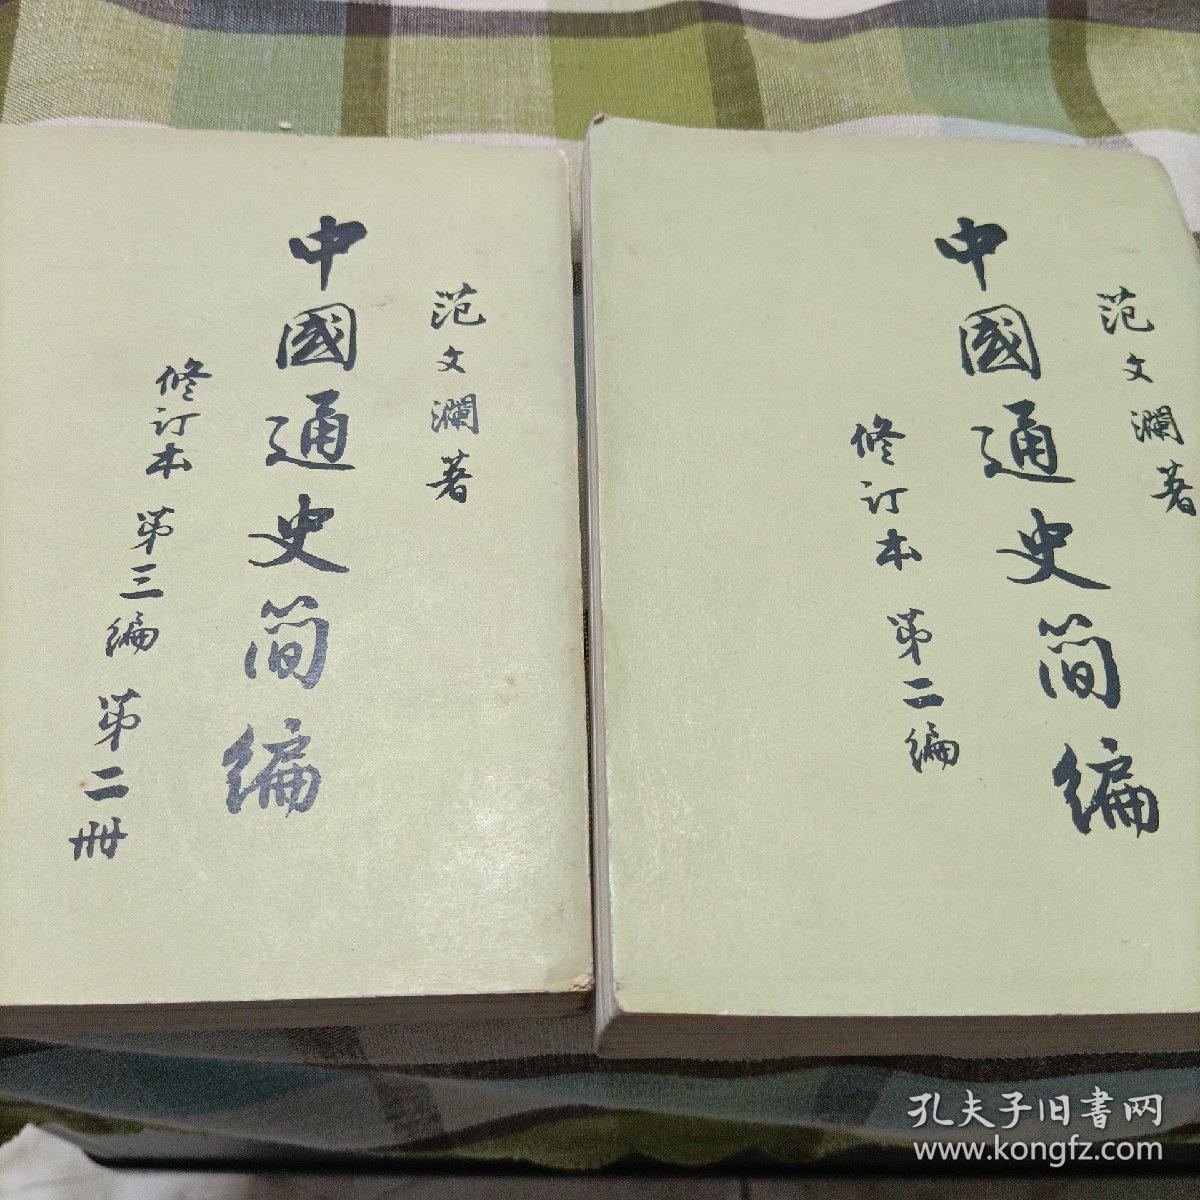 范文瀾著
中國通史简编
修订本 第三编 第二册
范文瀾著
中國通史简编
修订本 第二编
孔夫子旧書网
www.kongfz.com